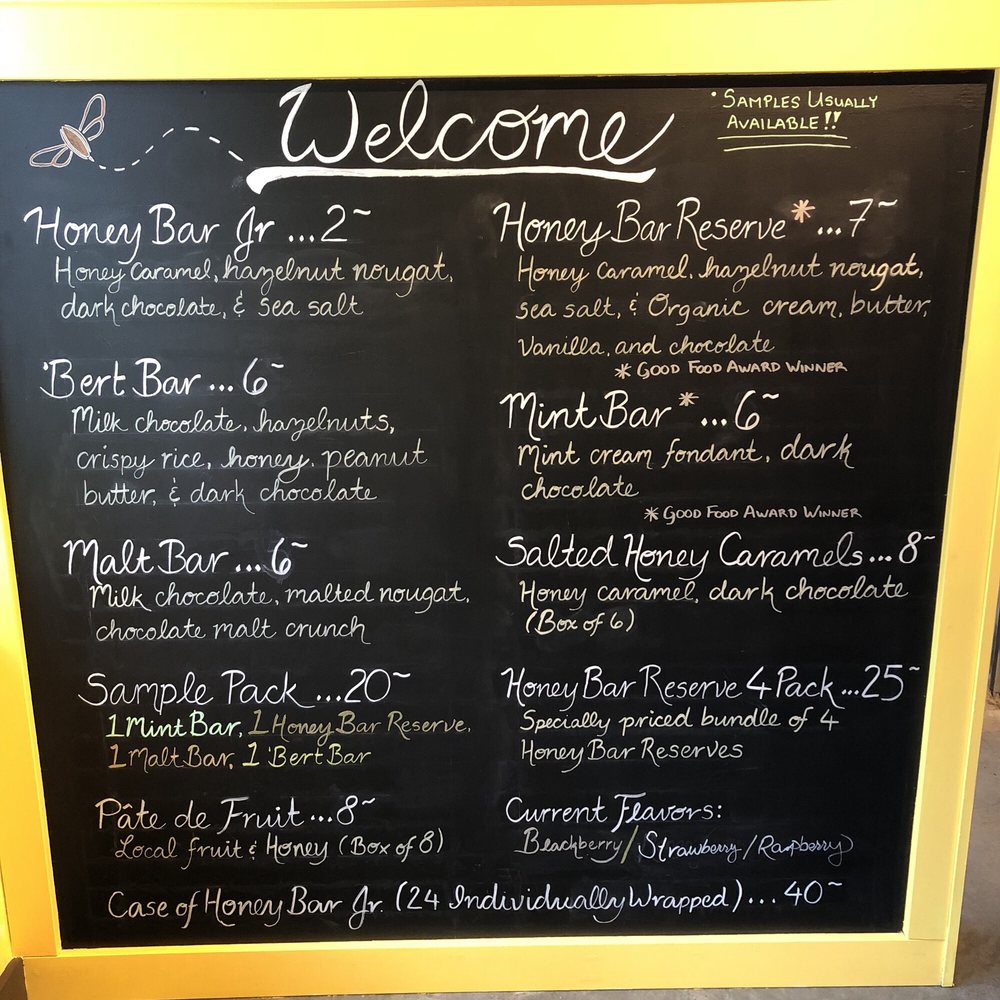 Welcome
• Samples Usually
Available!!
Honey Bar Jr ...2~
Honey Caramel, hazelnut nougat,
dark chocolate, & sea salt
'Bert Bar ...6~
Milk chocolate, hazelnuts,
crispy rice, honey, peanut
butter, & dark chocolate
Malt Bar ...6~
Milk chocolate, malted nougat,
chocolate malt crunch
Sample Pack ...20~
1 Mint Bar, 1 Honey Bar Reserve,
1 Malt Bar, 1 'Bert Bar
Pâte de Fruit ...8~
Local fruit & Honey (Box of 8)
Honey Bar Reserve* ...7~
Honey Caramel, hazelnut nougat,
sea salt, & Organic cream, butter,
Vanilla, and chocolate
* Good Food Award Winner
Mint Bar* ...6~
Mint cream fondant, dark
chocolate
* Good Food Award Winner
Salted Honey Caramels ...8~
Honey caramel, dark chocolate
(Box of 6)
Honey Bar Reserve 4 Pack ...25~
Specially priced bundle of 4
Honey Bar Reserves
Current Flavors:
Blackberry/Strawberry/Raspberry
Case of Honey Bar Jr. (24 Individually Wrapped) ... 40~